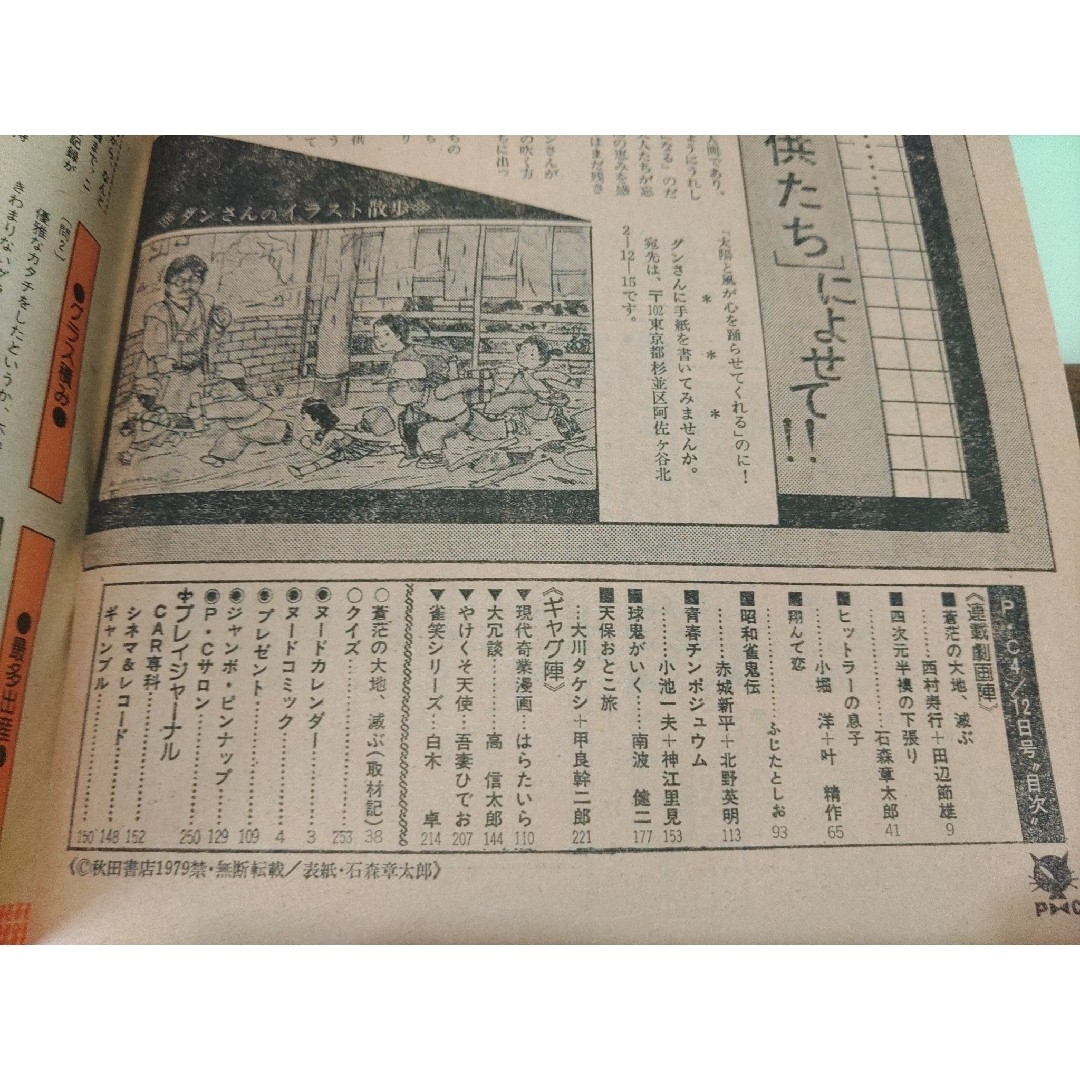 供たち」によせて!!
『太陽と風が心を踊らせてくれる』のに!
* * *
ダンさんに手紙を書いてみませんか。
宛先は、〒102東京都杉並区阿佐ケ谷北
2—12—15です。
人間であり、
ようにうれし
になる』のだ
人たちが忘
の恵みを感
はまだ残き
ンさんが
の吹く方
らに出っ
ダンさんのイラスト散歩
●グラス積み●
〔問2〕
優雅なカタチをしたというか、
●最多出産●
P・C4/12日号"目次"
《連載劇画陣》
■蒼茫の大地、滅ぶ
……西村寿行+田辺節雄 9
■四次元半襖の下張り
……石森章太郎 41
■ヒットラーの息子
……小堀 洋+叶 精作 65
■翔んで恋
……ふじたとしお 93
■昭和雀鬼伝
……赤城新平+北野英明 113
■青春チンポジュウム
……小池一夫+神江里見 153
■球鬼がいく…南波 健二 177
■天保おとこ旅
……大川タケシ+甲良幹二郎 221
《ギャグ陣》
▼現代奇業漫画…はらたいら 110
▼大冗談……高 信太郎 144
▼やけくそ天使…吾妻ひでお 207
▼雀笑シリーズ…白木 卓 214
○蒼茫の大地、滅ぶ(取材記) 38
○クイズ…… 253
◉ヌードカレンダー…… 3
◉ヌードコミック…… 4
◉プレゼント…… 109
◉ジャンボ・ピンナップ…… 129
◉P・Cサロン…… 250
プレイジャーナル
CAR専科…… 152
シネマ&レコード…… 148
ギャンブル…… 150
《©秋田書店1979禁・無断転載/表紙・石森章太郎》